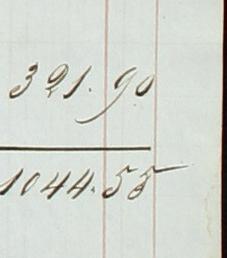 321.90
1044.55